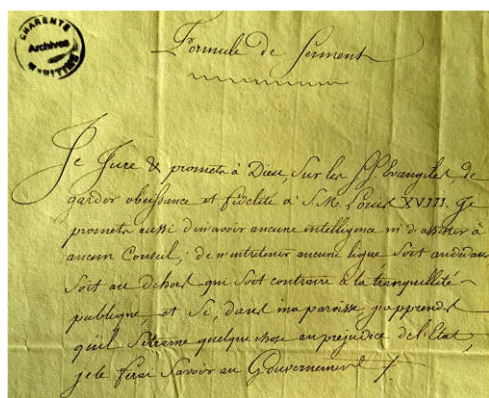 CHARENTE
Archives
MARITIME
Formule de serment
Je Jure & promets à Dieu, Sur les SS. Evangiles, de
garder obeissance et fidelité à S. M. Louis XVIII. Je
promets aussi d'avoir aucune intelligence ni d'assister à
aucun Conseil, de n'entretenir aucune ligue Soit au dedans
Soit au dehors qui Soit contraire à la tranquillité
publique et Si, dans ma paroisse, j'apprends
qu'il Se trame quelque chose au prejudice de l'Etat,
je le ferai Savoir au Gouvernement